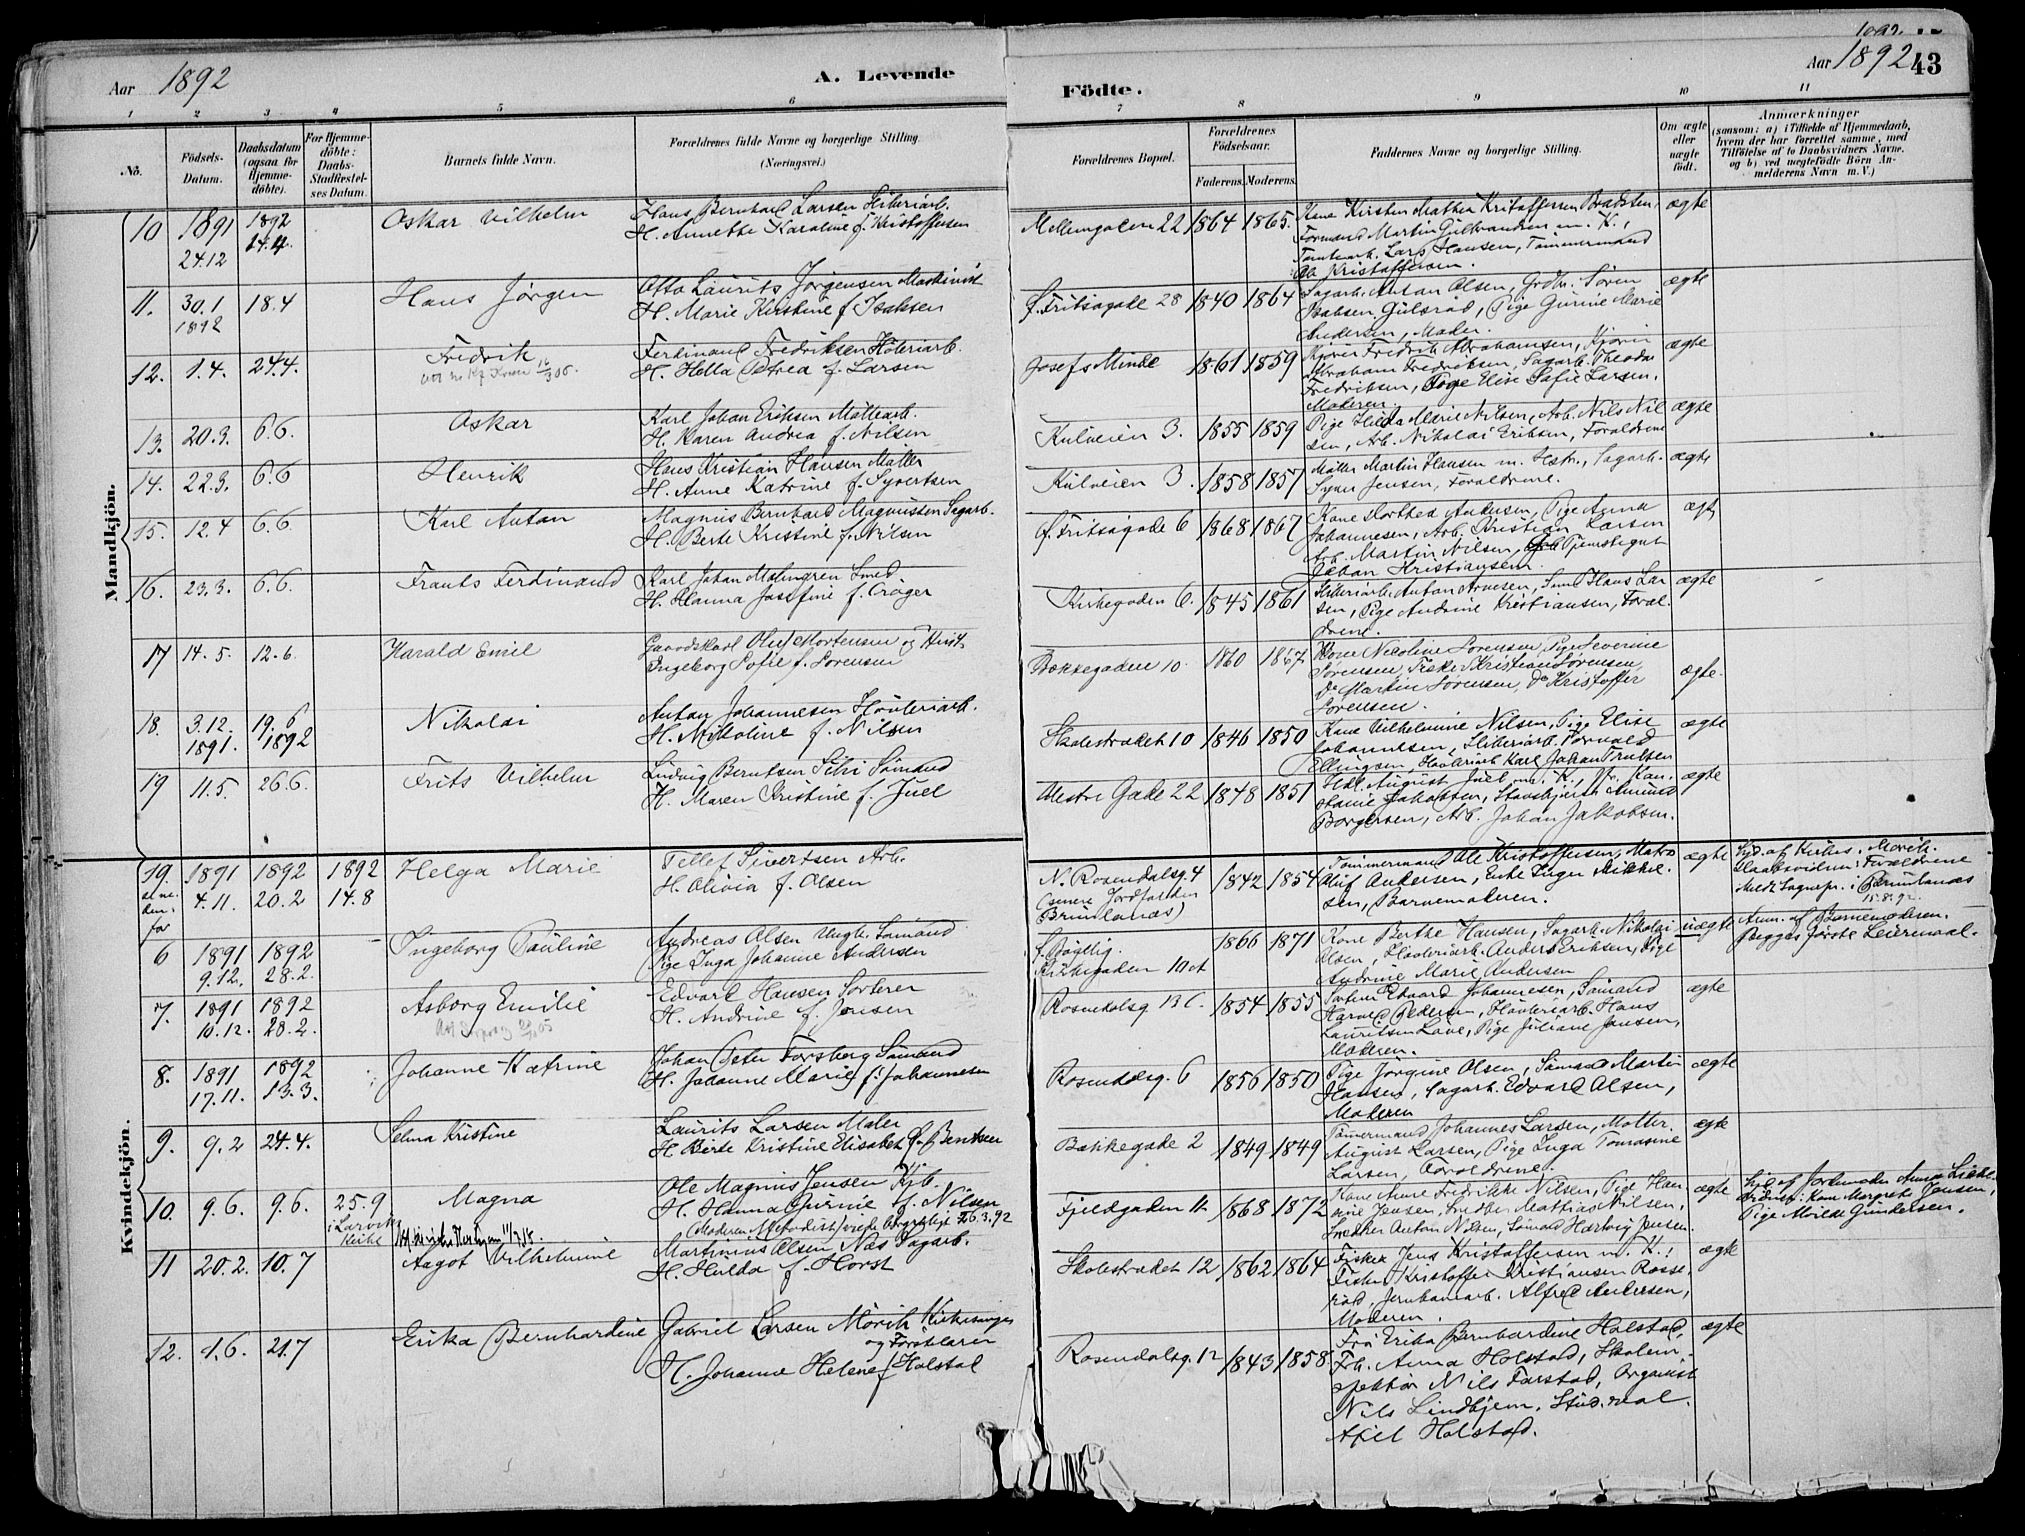 Aar 1892
A. Levende
Födte.
1892.
Aar 1892
43
1 2 3 4 5 6 7 8 9 10 11
No.
Födsels-
Datum.
Daabsdatum
(ogsaa for
Hjemme-
döbte).
For Hjemme-
döbte:
Daabs-
Stadfæstel-
ses Datum.
Barnets fulde Navn.
Forældrenes fulde Navne og borgerlige Stilling.
(Næringsvei.)
Forældrenes Bopæl.
Forældrenes
Födselsaar.
Faderens. Moderens.
Faddernes Navne og borgerlige Stilling.
Om ægte
eller
uægte
födt.
Anmærkninger
(saasom: a) i Tilfælde af Hjemmedaab,
hvem der har forrettet samme, med
Tilföielse af to Daabsvidners Navne,
og b) ved uægtefödte Börn An-
melderens Navn m. V.)
Mandkjön.
10 1891 24.12 1892 24.4. Oskar Vilhelm
Hans Bernhard Larsen Sliberiarb.
H. Annette Karoline f. Kristoffersen
Mellemgaden 22 1864 1865.
Kone Kirsten Mathea Kristoffersen Bradsten,
Formand Martin Gulbrandsen m. K.,
Tomtearb. Lars Hansen, Tømmermand
Ole Kristoffersen.
ægte
11. 30.1 1892 18.4 Hans Jørgen
Otto Laurits Jørgensen Maskinist
H. Marie Kirstine f. Isaksen
f. Fritsøgade 28 1840 1864
Sagarb. Anton Olsen, Grdbr. Søren
Isaksen Gulsrød, Pige Gurine Marie
Andersen, Moder.
ægte
12. 1.4. 24.4. Fredrik
Ferdinand Fredriksen Høvleriarb.
H. Hella Petrea f. Larsen
Josefs Minde 1861 1859
Kjører Fredrik Abrahamsen, Kjører
Abraham Fredriksen, Sagarb. Theodor
Fredriksen, Pige Elise Sofie Larsen,
Moderen.
ægte
13. 20.3. 6.6. Oskar
Karl Johan Eriksen Møllearb.
H. Karen Andrea f. Nilsen
Kulveien 3. 1855 1859
Pige Hilda Marie Nilsen, Arb. Nils Nil
sen, Arb. Nikolai Eriksen, Forældrene
ægte
14. 22.3. 6.6 Henrik
Hans Kristian Hansen Møller
H. Anne Katrine f. Syvertsen
Kulveien 3. 1858 1857
Møller Martin Hansen m. Hstr., Sagarb.
Jensen, Forældrene.
ægte
15. 12.4 6.6. Karl Anton
Magnus Bernhard Magnussen Sagarb.
H. Berte Kristine f. Nilsen
f. Fritsøgade 6 1868 1867
Kone Dorthea Andersen, Pige Anna
Johannesen, Arb. Kristian Larsen
Arb. Martin Nilsen, Tjenestegut
Johan Kristiansen.
ægt
16. 23.3. 6.6. Frants Ferdinand
Karl Johan Malmgren Smed
H. Hanna Josefine f. Crøger
Kirkegaden 6. 1845 1861
Sliberiarb. Anton Arnesen, Smed Hans Lar
sen, Pige Andrine Kristiansen, Foræl-
drene.
ægte
17 14.5. 12.6. Harald Emil
Gaardskarl Oluf Mortensen og Hust.
Ingeborg Sofie f. Sørensen
Bækkegaden 10 1860 1867
Kone Nicoline Sørensen, Pige Severine
Sørensen, Fisker Kristian Sørensen,
Do Martin Sørensen, Do Kristoffer
Sørensen.
ægte.
18. 3.12. 1891. 19.6 1892 Nikolai
Anton Johannesen Høvleriarb.
H. Nikoline f. Nilsen
Skolestrædet 10 1846 1850
Kone Vilhelmine Nilsen, Pige Elise
Johannesen, Sliberiarb. Torvald
Ellingsen, Høvleriarb. Karl Johan Trulsen
ægte
19 11.5. 26.6. Frits Vilhelm
Ludvig Berntsen Sømand
H. Maren Kristine f. Juel
Vestre Gade 22 1848 1851
August Juel m. K., Jfr. Kon-
stanse Jakobsen, Amund
Borgersen, Arb. Johan Jakobsen.
ægte
Kvindekjön.
19. 1891 4.11. 1892 20.2 1892 14.8 Helga Marie
Tellef Sivertsen Arb.
H. Olivia f. Olsen
N. Rosendalsg. 4
(senere Jordfalden
Brunlanæs)
1842 1854
Tømmermand Ole Kristoffersen, Matros
Oluf Andersen, Enke Inger Mikkel-
sen, Barnemoderen.
ægte
Hjd. af Kirkes. Mørch.
Daabsvidner: Forældrene
Meldt Sognepr. i Brunlanæs
15.8.92.
6 1891 9.12. 1892 28.2. Ingeborg Pauline
Andreas Olsen Ungk. Sømand
Pige Inga Johanne Andersen
Kirkegaden 10 1866 1871
Kone Berthe Hansen, Sagarb. Nikolai
Olsen, Høvleriarb. Anders Eriksen, Pige
Andrine Marie Andersen
uægte
Anm. af Barnemoderen.
Begges første Leiermaal.
7. 1891 10.12. 1892 28.2. Asborg Emilie
Edvard Hansen Sorterer
H. Andrine f. Jensen
Rosendalsg 13 C. 1854 1855
Sorterer Edvard Johannesen, Sømand
Harald Pedersen, Høvleriarb. Hans
Lauritsen Lave, Pige Juliane Jensen,
Moderen.
ægte
8. 1891 17.11. 1892 13.3. Johanne Katrine
Johan Peter Forsberg Sømand
H. Johanne Marie f. Johannesen
Rosendalsg. 6 1856 1850
Pige Jørgine Olsen, Sømand Martin
Hansen, Sagarb. Edvard Olsen,
Moderen
ægte
9. 9.2 24.4. Selma Kristine
Laurits Larsen Maler
H. Berte Kristine Elisabet f. Berntsen
Bækkegade 2 1849 1849
Tømmermand Johannes Larsen, Møller
August Larsen, Pige Inga Tomasine
Larsen, Forældrene.
ægte
10. 9.6. 9.6. 25.9 i Larviks Kirke Magna
Ole Magnus Jensen Kjb.
H. Hanna Gurine f. Nilsen
(Moderen Methodist, viede borgerligt 26.3.92
Fjeldgaden 11 1868 1872
Kone Anne Fredrikke Nilsen, Pige Han-
sine Jensen, Snedker Mattias Nilsen,
Snedker Anton Nilsen, Sømand Hartvig Jensen.
ægte
Hjd. af Jordemoder Anna Likke.
Vidner: Kone Margrete Jensen,
Pige Milde Gundersen.
11 20.2. 10.7 Aagot Vilhelmine
Martinius Olsen Næs Sagarb.
H. Hulda f. Horst
Skolestrædet 12 1862 1864
Fisker Jens Kristoffersen m. K.,
Fisker Kristoffer Kristiansen Rosse-
rød, Jernbanearb. Alfred Andersen,
Moderen.
ægte
12. 1.6. 21.7 Erika Bernhardine
Gabriel Larsen Mørch Kirkesanger
og Forstlærer
H. Johanne Helene f. Holstad
Rosendalsg. 12 1843 1858
Fru Erika Bernhardine Holstad,
Frk. Anna Holstad, Skolein-
spektør Nils Farstad, Organist
Nils Lindhjem, Stud. real.
Axel Holstad.
ægte